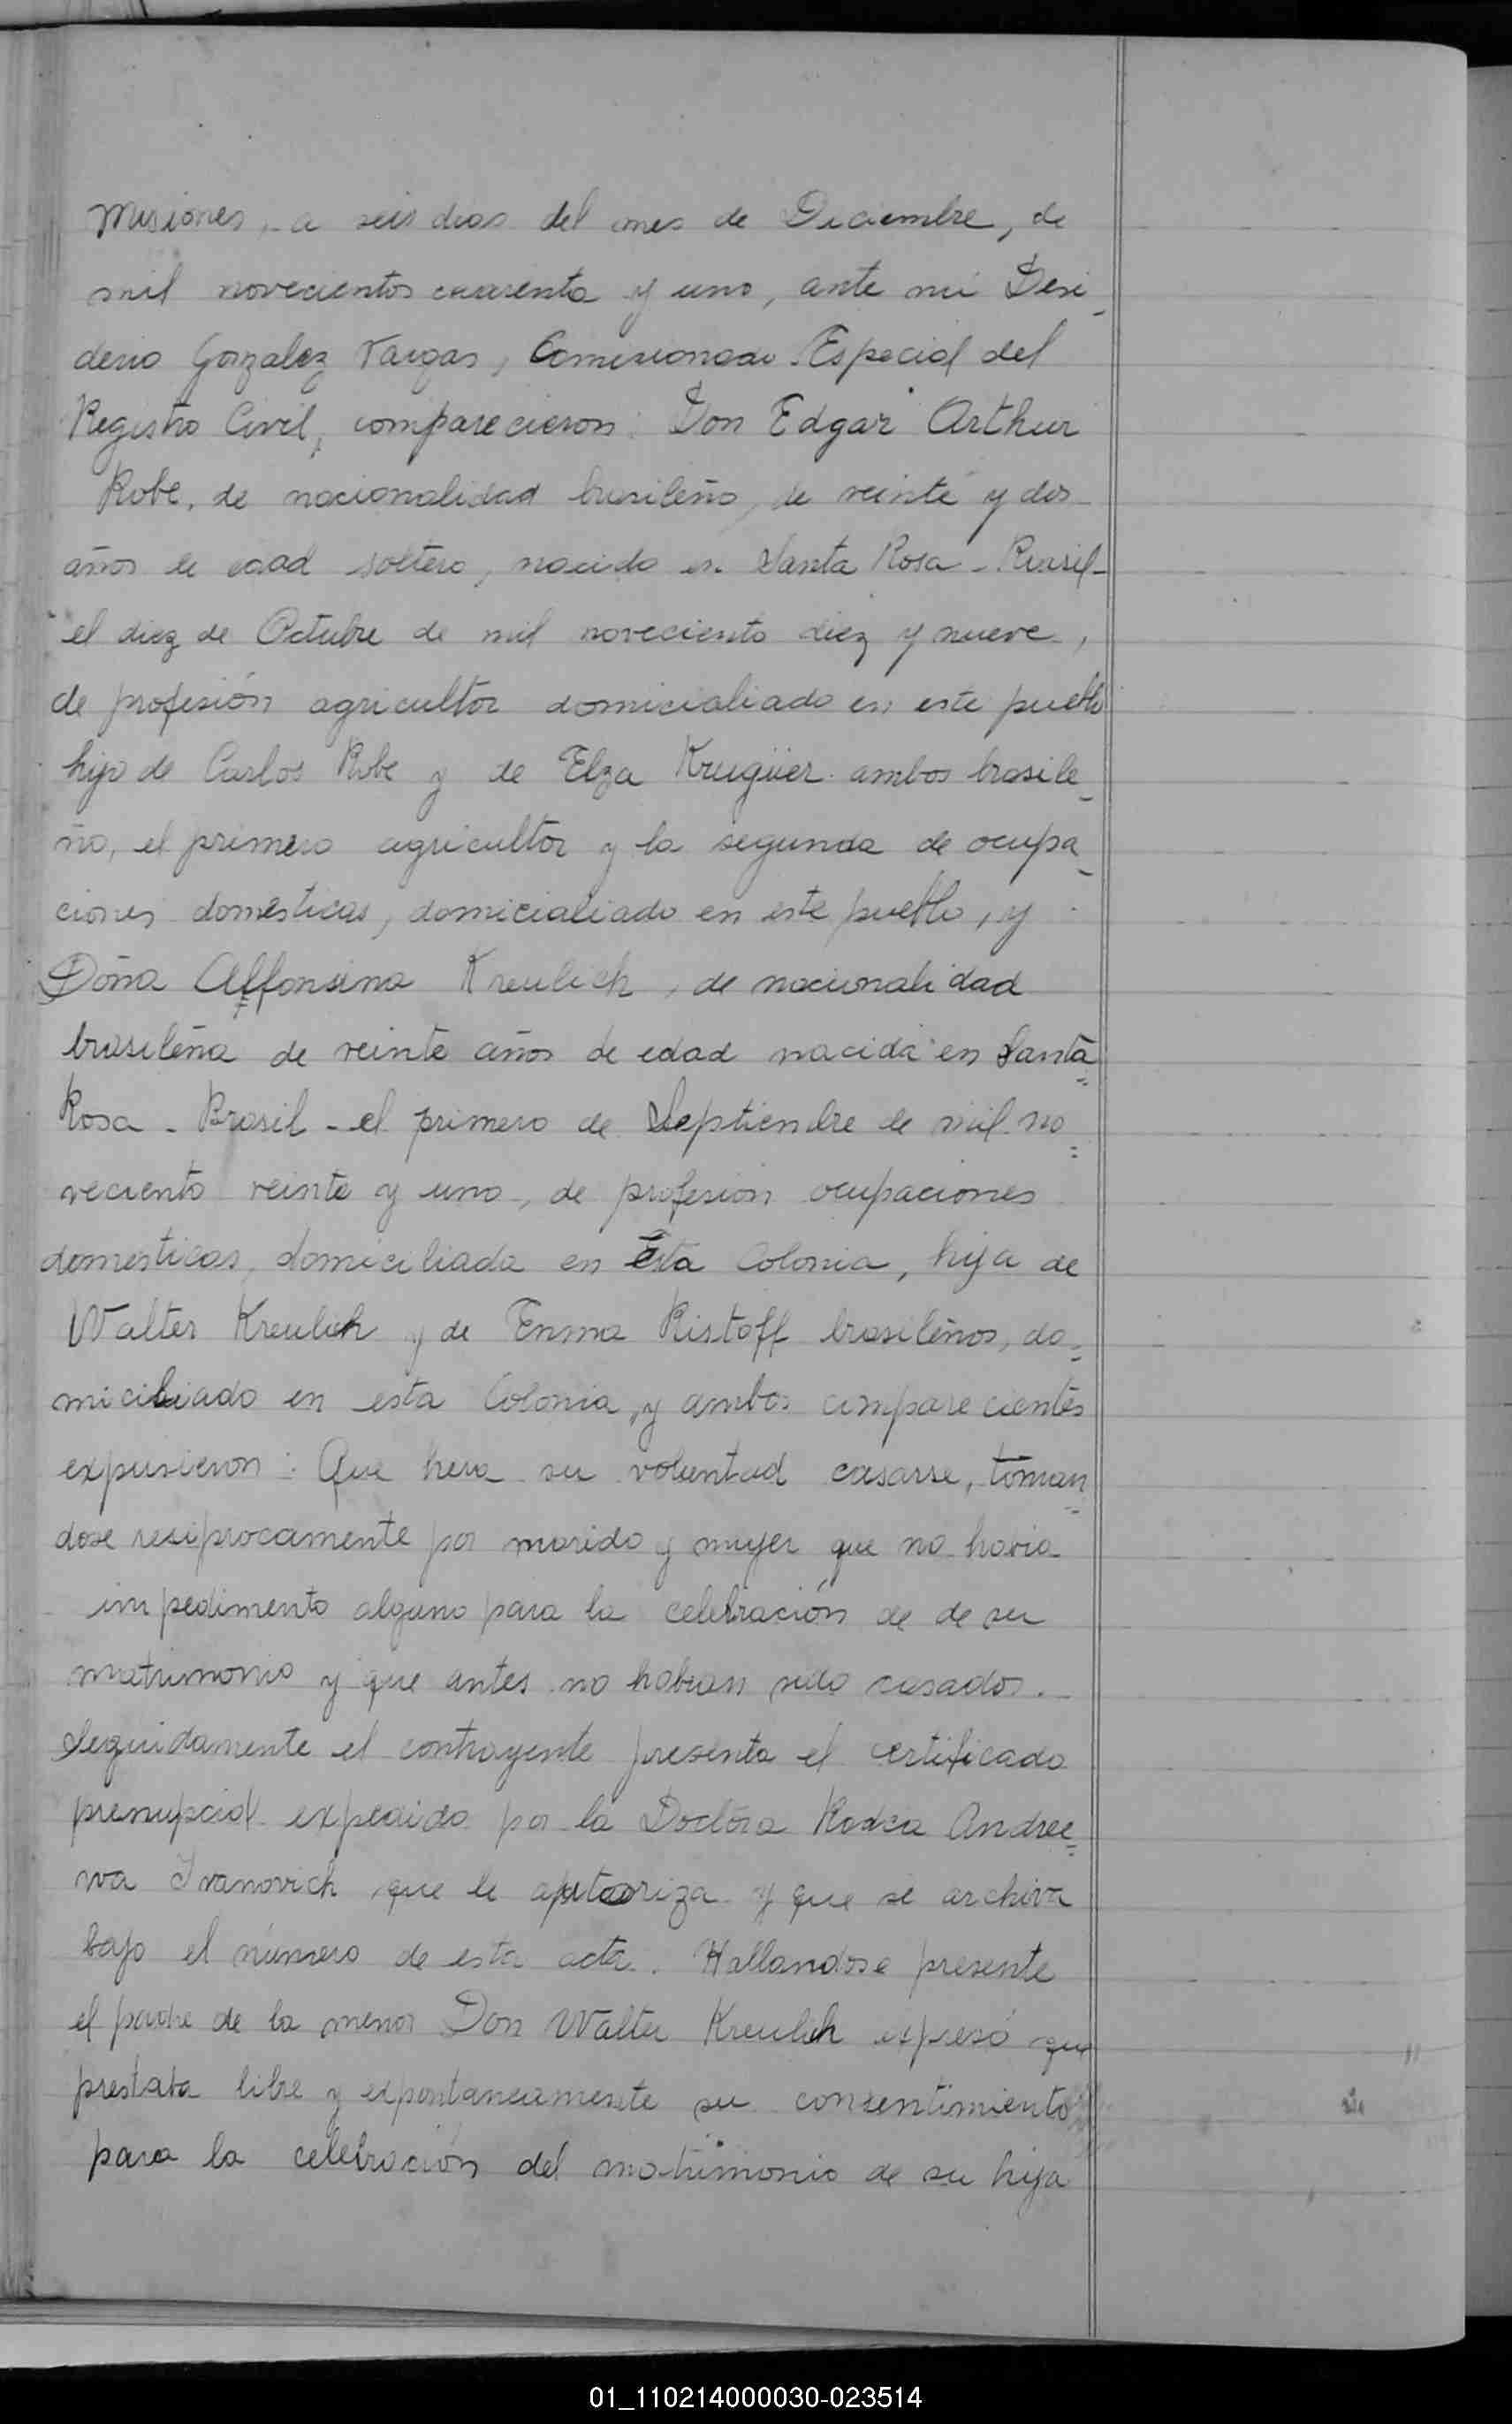 Misiones, a seis dias del mes de Diciembre, de
mil novecientos cuarenta y uno, ante mi Desi-
derio Gonzalez Vargas, Comisionado Especial del
Registro Civil, comparecieron: Don Edgar Arthur
Robe, de nacionalidad brasileño, de veinte y dos
años de edad soltero, nacido en Santa Rosa - Brasil-
el diez de Octubre de mil noveciento diez y nueve,
de profesión agricultor domicialiado en este pueblo
hijo de Carlos Robe y de Elza Krugüer ambos brasile-
ño, el primero agricultor y la segunda de ocupa-
ciones domésticas, domicialiado en este pueblo, y
Doña Alffonsina Kreulich, de nacionalidad
brasileña de veinte años de edad nacida en Santa=
Rosa - Brasil - el primero de Septienbre de mil no=
veciento veinte y uno, de profesion ocupaciones
domésticas, domiciliada en Esta Colonia, hija de
Walter Kreulich y de Enma Ristoff brasileños, do=
miciliado en esta Colonia, y ambos comparecientes
expusieron: Que hera su voluntad casarse, toman=
dose resiprocamente por marido y mujer que no havia
impedimento alguno para la celebración de de su
matrimonio y que antes no habian sido casados.-
Seguidamente el contrayente presenta el certificado
prenupcial expedido por la Doctora Andree=
wa Ivanovich que le autooriza y que se archiva
bajo el número de esta acta. Hallandose presente
el padre de la menor Don Walter Kreulich expresó que
prestaba libre y espontaneamente su consentimiento
para la celebración del matrimonio de su hija
01_110214000030-023514